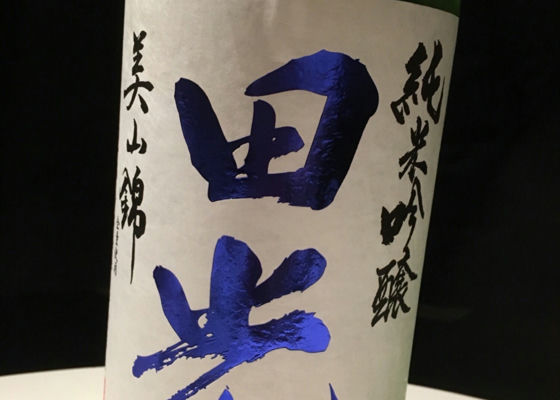 純米吟醸
田光
美山錦